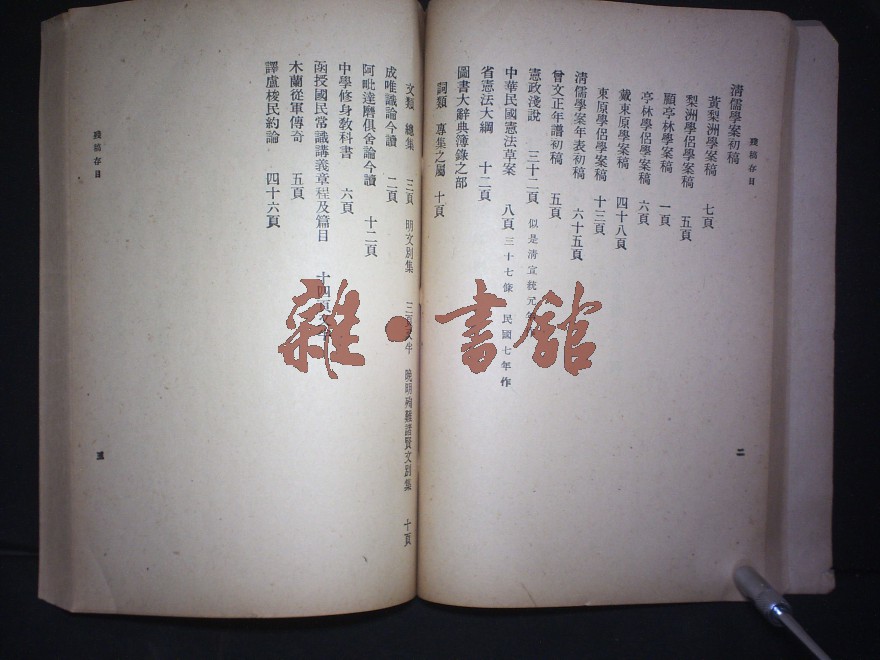 殘稿存目
清儒學案初稿
黃梨洲學案稿 七頁
梨洲學侶學案稿 五頁
顧亭林學案稿 一頁
亭林學侶學案稿 六頁
戴東原學案稿 四十八頁
東原學侶學案稿 十三頁
清儒學案年表初稿 六十五頁
曾文正年譜初稿 五頁
憲政淺說 三十二頁 似是清宣統元年
中華民國憲法草案 八頁 三十七條 民國七年作
省憲法大綱 十二頁
圖書大辭典簿錄之部
詞類 專集之屬 十頁
二
文類 總集 三頁 明文別集 三頁 晚明殉難諸賢文別集 十頁
成唯識論今讀 二頁
阿毗達磨俱舍論今讀 十二頁
中學修身敎科書 六頁
函授國民常識講義章程及篇目 十四頁
木蘭從軍傳奇 五頁
譯盧梭民約論 四十六頁
殘稿存目
三
雜·書館